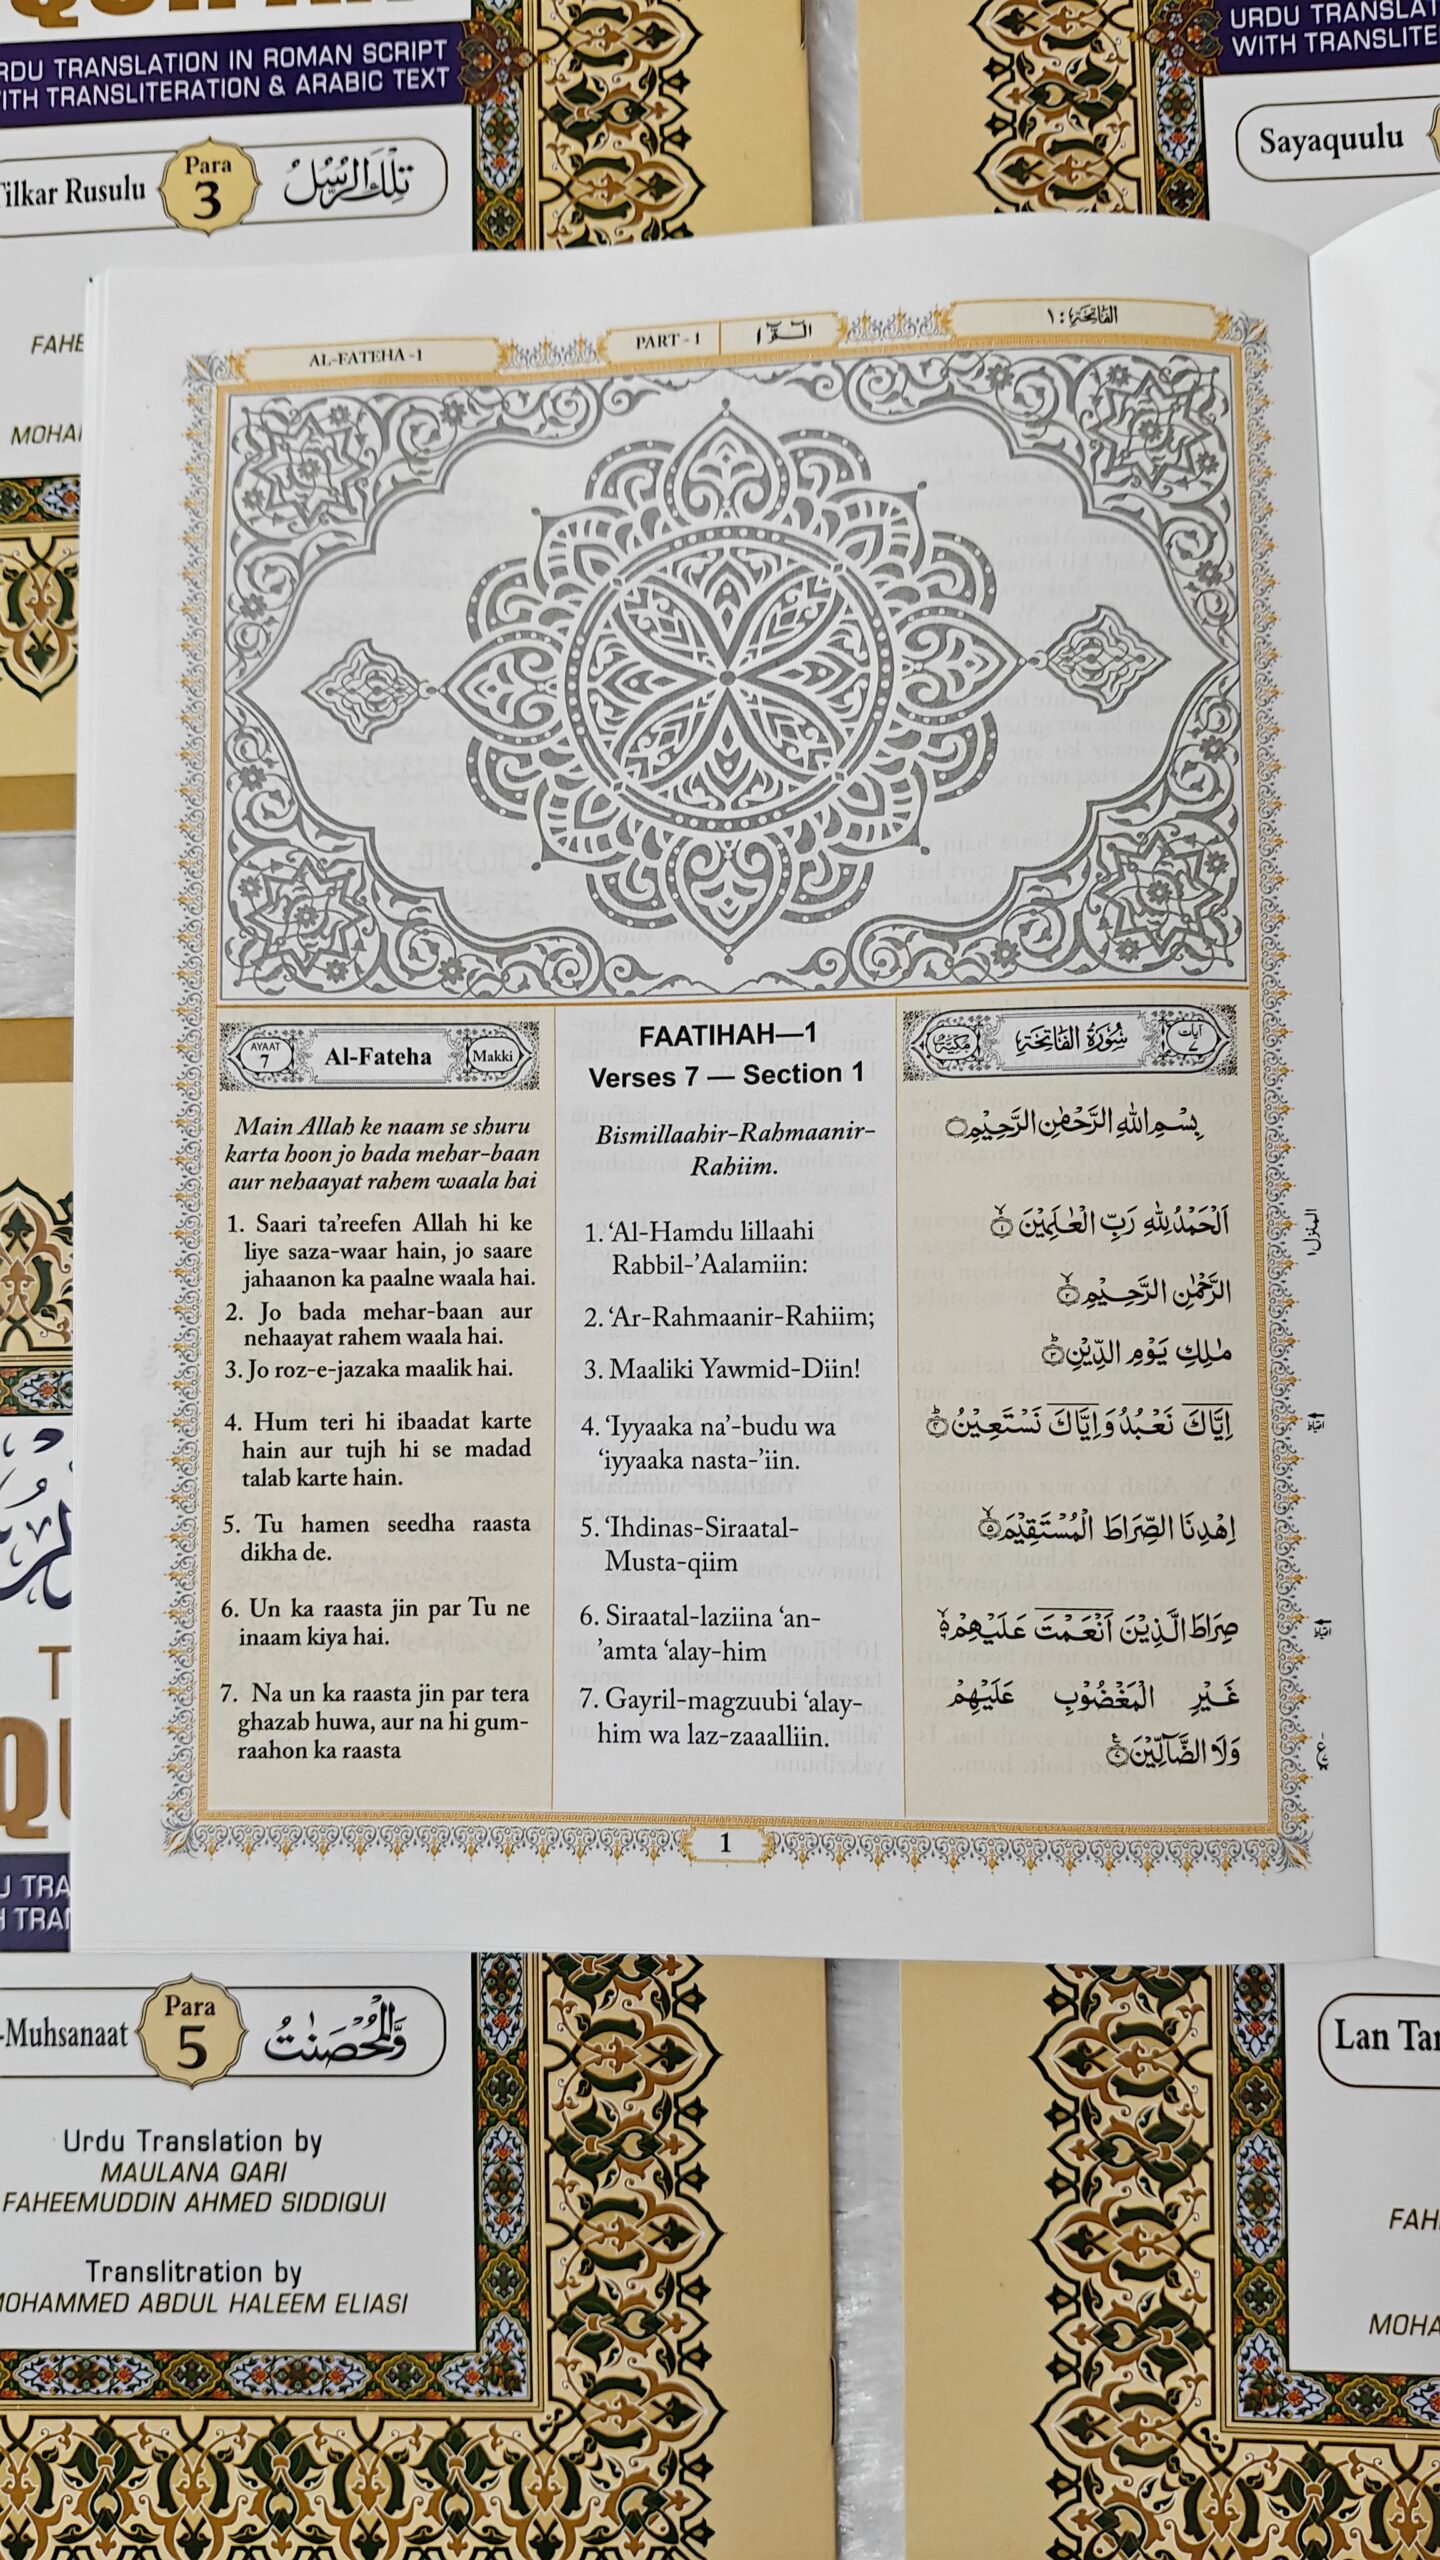 URDU TRANSLATION IN ROMAN SCRIPT
WITH TRANSLITERATION & ARABIC TEXT
Tilkar Rusulu
Para
3
تِلْكَ الرُّسُلُ
WITH
Sayaquulu
AL-FATEHA -1
PART - 1
الٓـمّٓ ١
الفَاتِحَة : ١
AYAAT
7
Al-Fateha
Makki
Main Allah ke naam se shuru
karta hoon jo bada mehar-baan
aur nehaayat rahem waala hai
1. Saari ta'reefen Allah hi ke
liye saza-waar hain, jo saare
jahaanon ka paalne waala hai.
2. Jo bada mehar-baan aur
nehaayat rahem waala hai.
3. Jo roz-e-jazaka maalik hai.
4. Hum teri hi ibaadat karte
hain aur tujh hi se madad
talab karte hain.
5. Tu hamen seedha raasta
dikha de.
6. Un ka raasta jin par Tu ne
inaam kiya hai.
7. Na un ka raasta jin par tera
ghazab huwa, aur na hi gum-
raahon ka raasta
FAATIHAH—1
Verses 7 — Section 1
Bismillaahir-Rahmaanir-
Rahiim.
1. ‘Al-Hamdu lillaahi
Rabbil-’Aalamiin:
2. ‘Ar-Rahmaanir-Rahiim;
3. Maaliki Yawmid-Diin!
4. ‘Iyyaaka na’-budu wa
‘iyyaaka nasta-’iin.
5. ‘Ihdinas-Siraatal-
Musta-qiim
6. Siraatal-laziina ‘an-
’amta ‘alay-him
7. Gayril-magzuubi ‘alay-
him wa laz-zaaalliin.
مَكِّيَّةٌ
سُوْرَةُ الْفَاتِحَةِ
اٰيات ٧
بِسْمِ اللّٰهِ الرَّحْمٰنِ الرَّحِيْمِ
اَلْحَمْدُ لِلّٰهِ رَبِّ الْعٰلَمِيْنَ ١
الرَّحْمٰنِ الرَّحِيْمِ ٢
مٰلِكِ يَوْمِ الدِّيْنِ ٣
اِيَّاكَ نَعْبُدُ وَاِيَّاكَ نَسْتَعِيْنُ ٤
اِهْدِنَا الصِّرَاطَ الْمُسْتَقِيْمَ ٥
صِرَاطَ الَّذِيْنَ اَنْعَمْتَ عَلَيْهِمْ ٦
غَيْرِ الْمَغْضُوْبِ عَلَيْهِمْ
وَلَا الضَّآلِّيْنَ ٧
المنزل ١
ع
1
Para
5
وَالْمُحْصَنٰتُ
Urdu Translation by
MAULANA QARI
FAHEEMUDDIN AHMED SIDDIQUI
Translitration by
MOHAMMED ABDUL HALEEM ELIASI
Lan